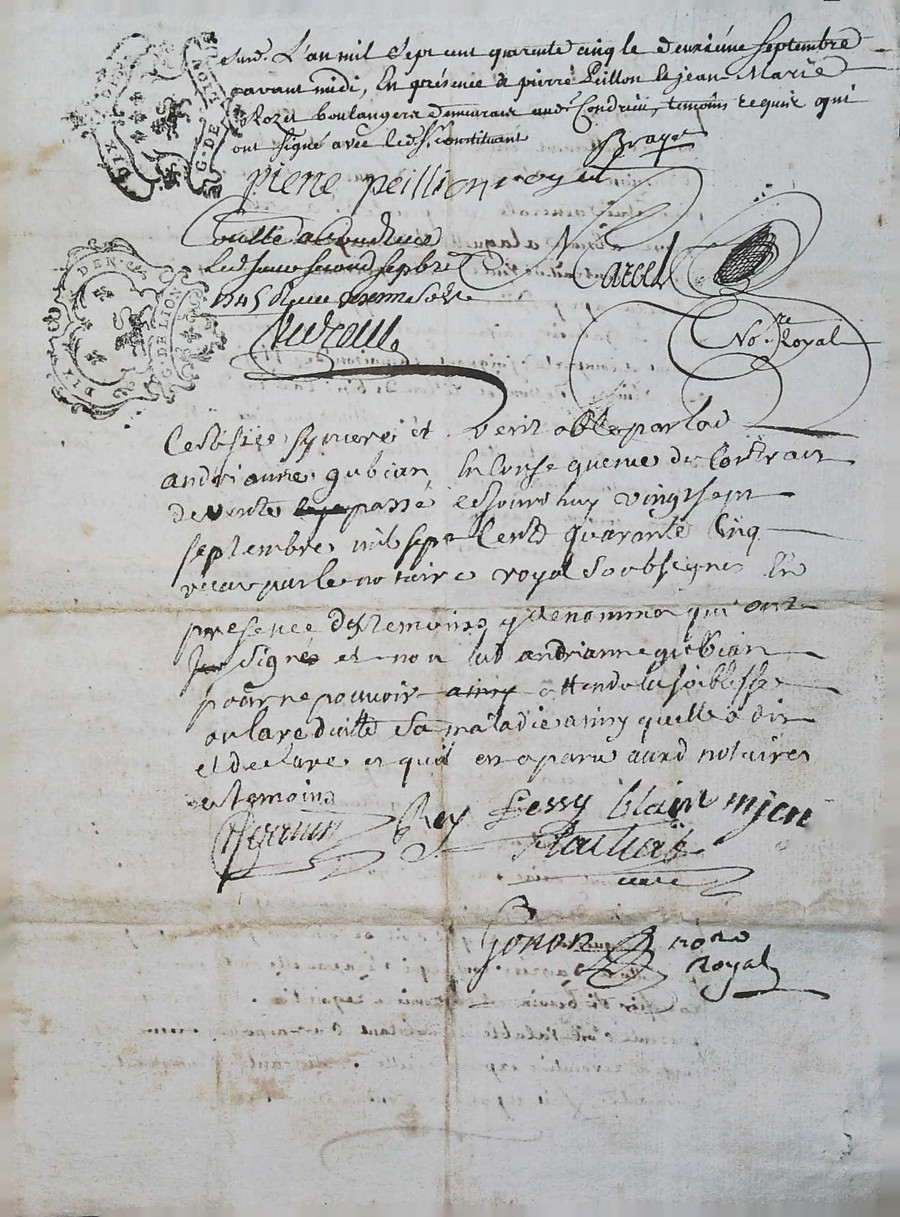 L'an mil sept cent quarente cinq le deuxiéme septembre
avant midi, En présence de pierre Peillon & jean Marie
Rozet boulangers demeurans aud. Condrieu, temoins requis qui
ont signé avec led. Sr. constituant
pierre peillion royet
Controllé a Condrieu
Led. jour second sepbre
1745
Carcel
Nore. Royal
DIX DEN.
G. DE LION
Certifiés syncere et verit able par lad
andrianne gubian En Conse quence du Contrait
de vente passé cejourd huy vingt sept
septembre mil sept Cent quarante Cinq
recus par le no taire royal soubsigne En
presence des temoins y denommes qui ont
signés et non lad andrianne gubian
pour ne pouvoir attendu la foiblesse
ou la reduitte sa maladie ainsy quelle a dit
et declare et quil en aparu aud notaires
et temoins
Perruin Rey Fessy blain mjon
curé
Gonon nore
Royal